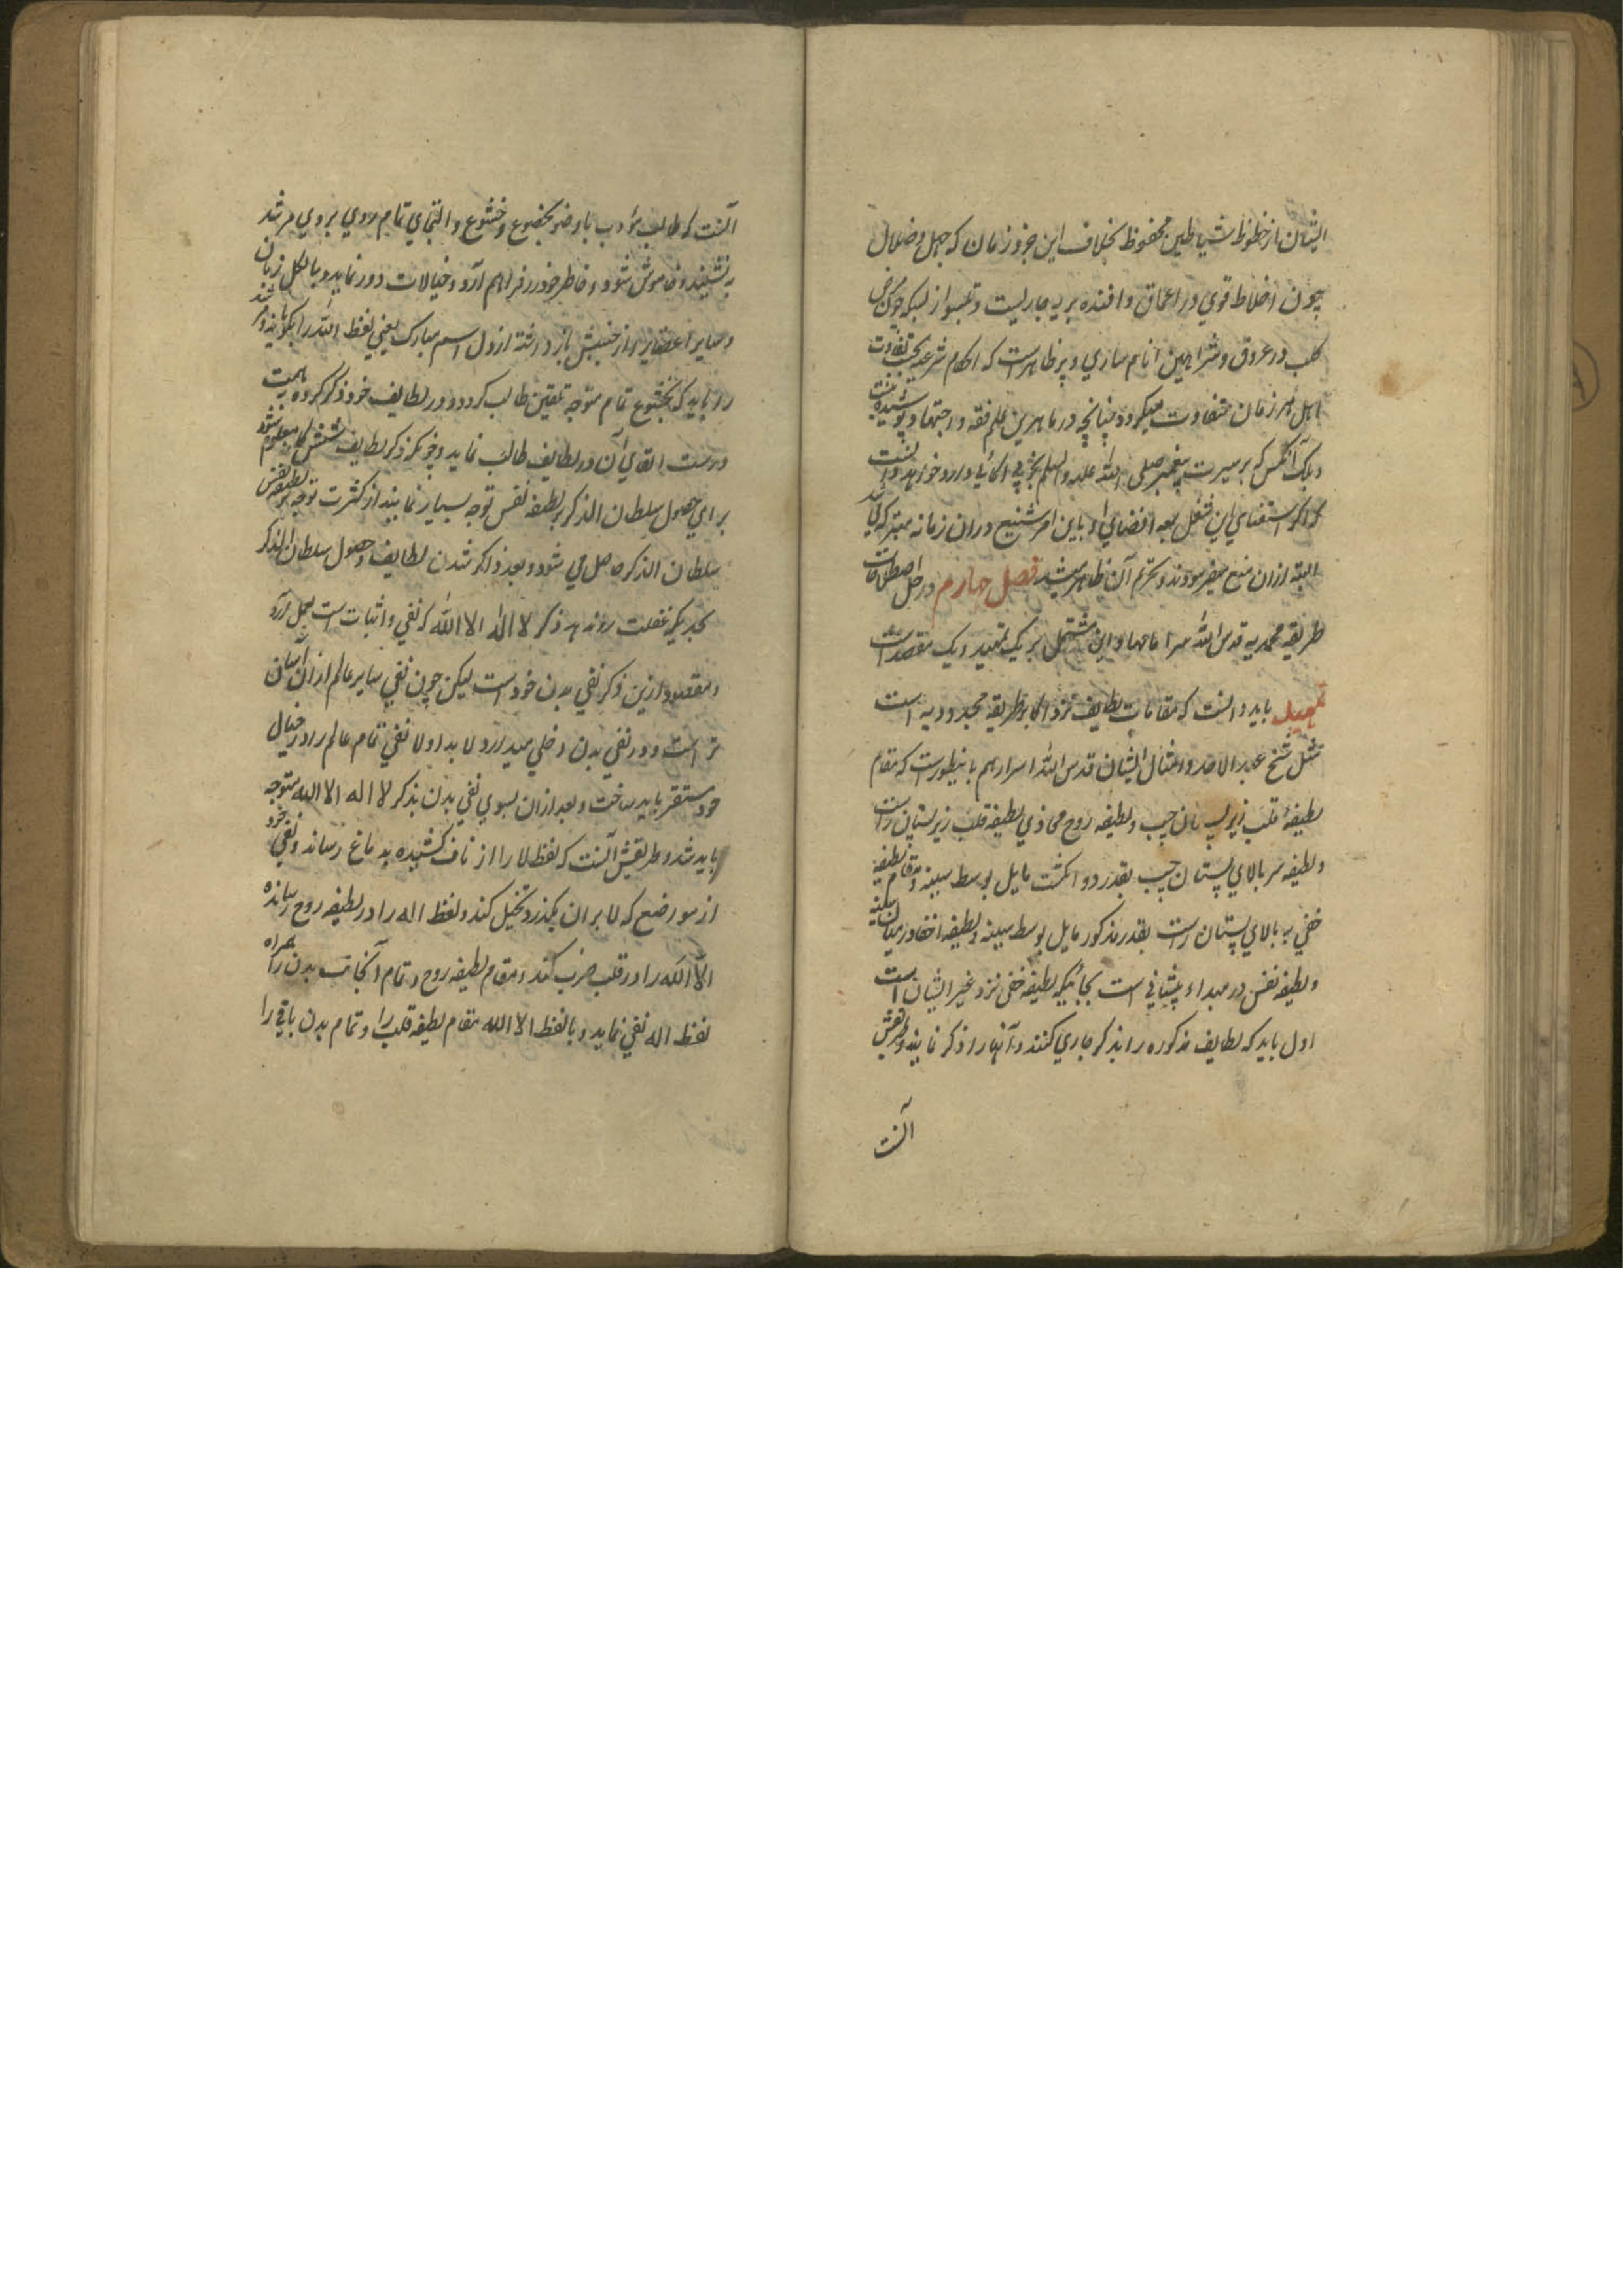 ایشان از خطوظ شیاطین محفوظ بخلاف این جزو زمان که جهل و ضلال
چون اخلاط قوی در اعماق وافئده بریه جاریست و تلبیس ابلیس چون مرض
کلب در عروق و شرائین انام ساری و پر ظاهر است که احکام شرعیه بحسب تفاوت
اهل هر زمان متفاوت میگردد چنانچه در ماهرین علم فقه و اجتهاد پوشیده نیست
و بلکه آنکس که بر سیرت پیغمبر صلی الله علیه وسلم بخوبی آگاهی دارد خواهد دانست
که اگر استفتای این شغل بعد افضای او باین امر شنیع در آن زمانه متبرکه می شد
البته ازان منع میفرمودند و تحریم آن ظاهر میشد فصل چهارم در حل اصطلاحات
طریقه محمدیه قدس الله سرامامها و این مشتمل بر یک تمهید و یک مقصد است
تمهید باید دانست که مقامات لطایف نزد اکابر طریقه مجددیه است
مثل شیخ عبد الاحد و امثال ایشان قدس الله اسرارهم باینطور است که مقام
لطیفهٔ قلب زیر پستان چپ و لطیفه روح محاذی لطیفه قلب زیر پستان راست
و لطیفه سر بالای پستان چپ بقدر دو انگشت مایل بوسط سینه و مقام لطیفه
خفی به بالای پستان راست بقدر مذکور مایل بوسط سینه و لطیفه اخفا در میان سینه
و لطیفه نفس در مبداء پیشانی است بجائیکه لطیفه خفی نزد غیر ایشان است
اول باید که لطایف مذکوره را بذکر جاری کنند و آنها را ذکر نمایند و طریقش
آنست
آنست که طالب مؤدب باوضو بخضوع و خشوع و التجای تمام روی بروی مرشد
به نشیند و خاموش شود و خاطر خود را فراهم آرد و خیالات دور نماید و بالکل زبان
و سایر اعضا را از جنبش باز داشته از دل اسم مبارک یعنی لفظ الله را بگویاند و مرشد
را باید که بخشوع تمام متوجه تلقین طالب گردد و در لطایف خود ذکر کرده بهمت
درست القای آن در لطایف طالب نماید و چونکه ذکر لطایف ششگانه معلوم شود
برای حصول سلطان الذکر بر لطیفه نفس توجه بسیار نمایند از کثرت توجه بر لطیفه نفس
سلطان الذکر حاصل می شود و بعد ذاکر شدن لطایف و حصول سلطان الذکر
بحدیکه غفلت روندهد ذکر لا اله الا الله که نفی و اثبات است بعمل آرد
و مقصود ازین ذکر نفی بدن خود است لیکن چون نفی سایر عالم ازان آسان
تر است و در نفی بدن دخلی میدارد لا بد اولا نفی تمام عالم را در خیال
خود مستقر باید ساخت و بعد ازان بسوی نفی بدن بذکر لا اله الا الله متوجه
باید شد و طریقش آنست که لفظ لا را از ناف کشیده به دماغ رساند و نفی خود
از مواضع که لا بران بگذرد تخیل کند و لفظ اله را در لطیفه روح رسانده
الا الله را در قلب ضرب کند و مقام لطیفه روح و تمام آنجانب بدن را همراه
لفظ اله نفی نماید و با لفظ الا الله مقام لطیفه قلب را و تمام بدن باقی را